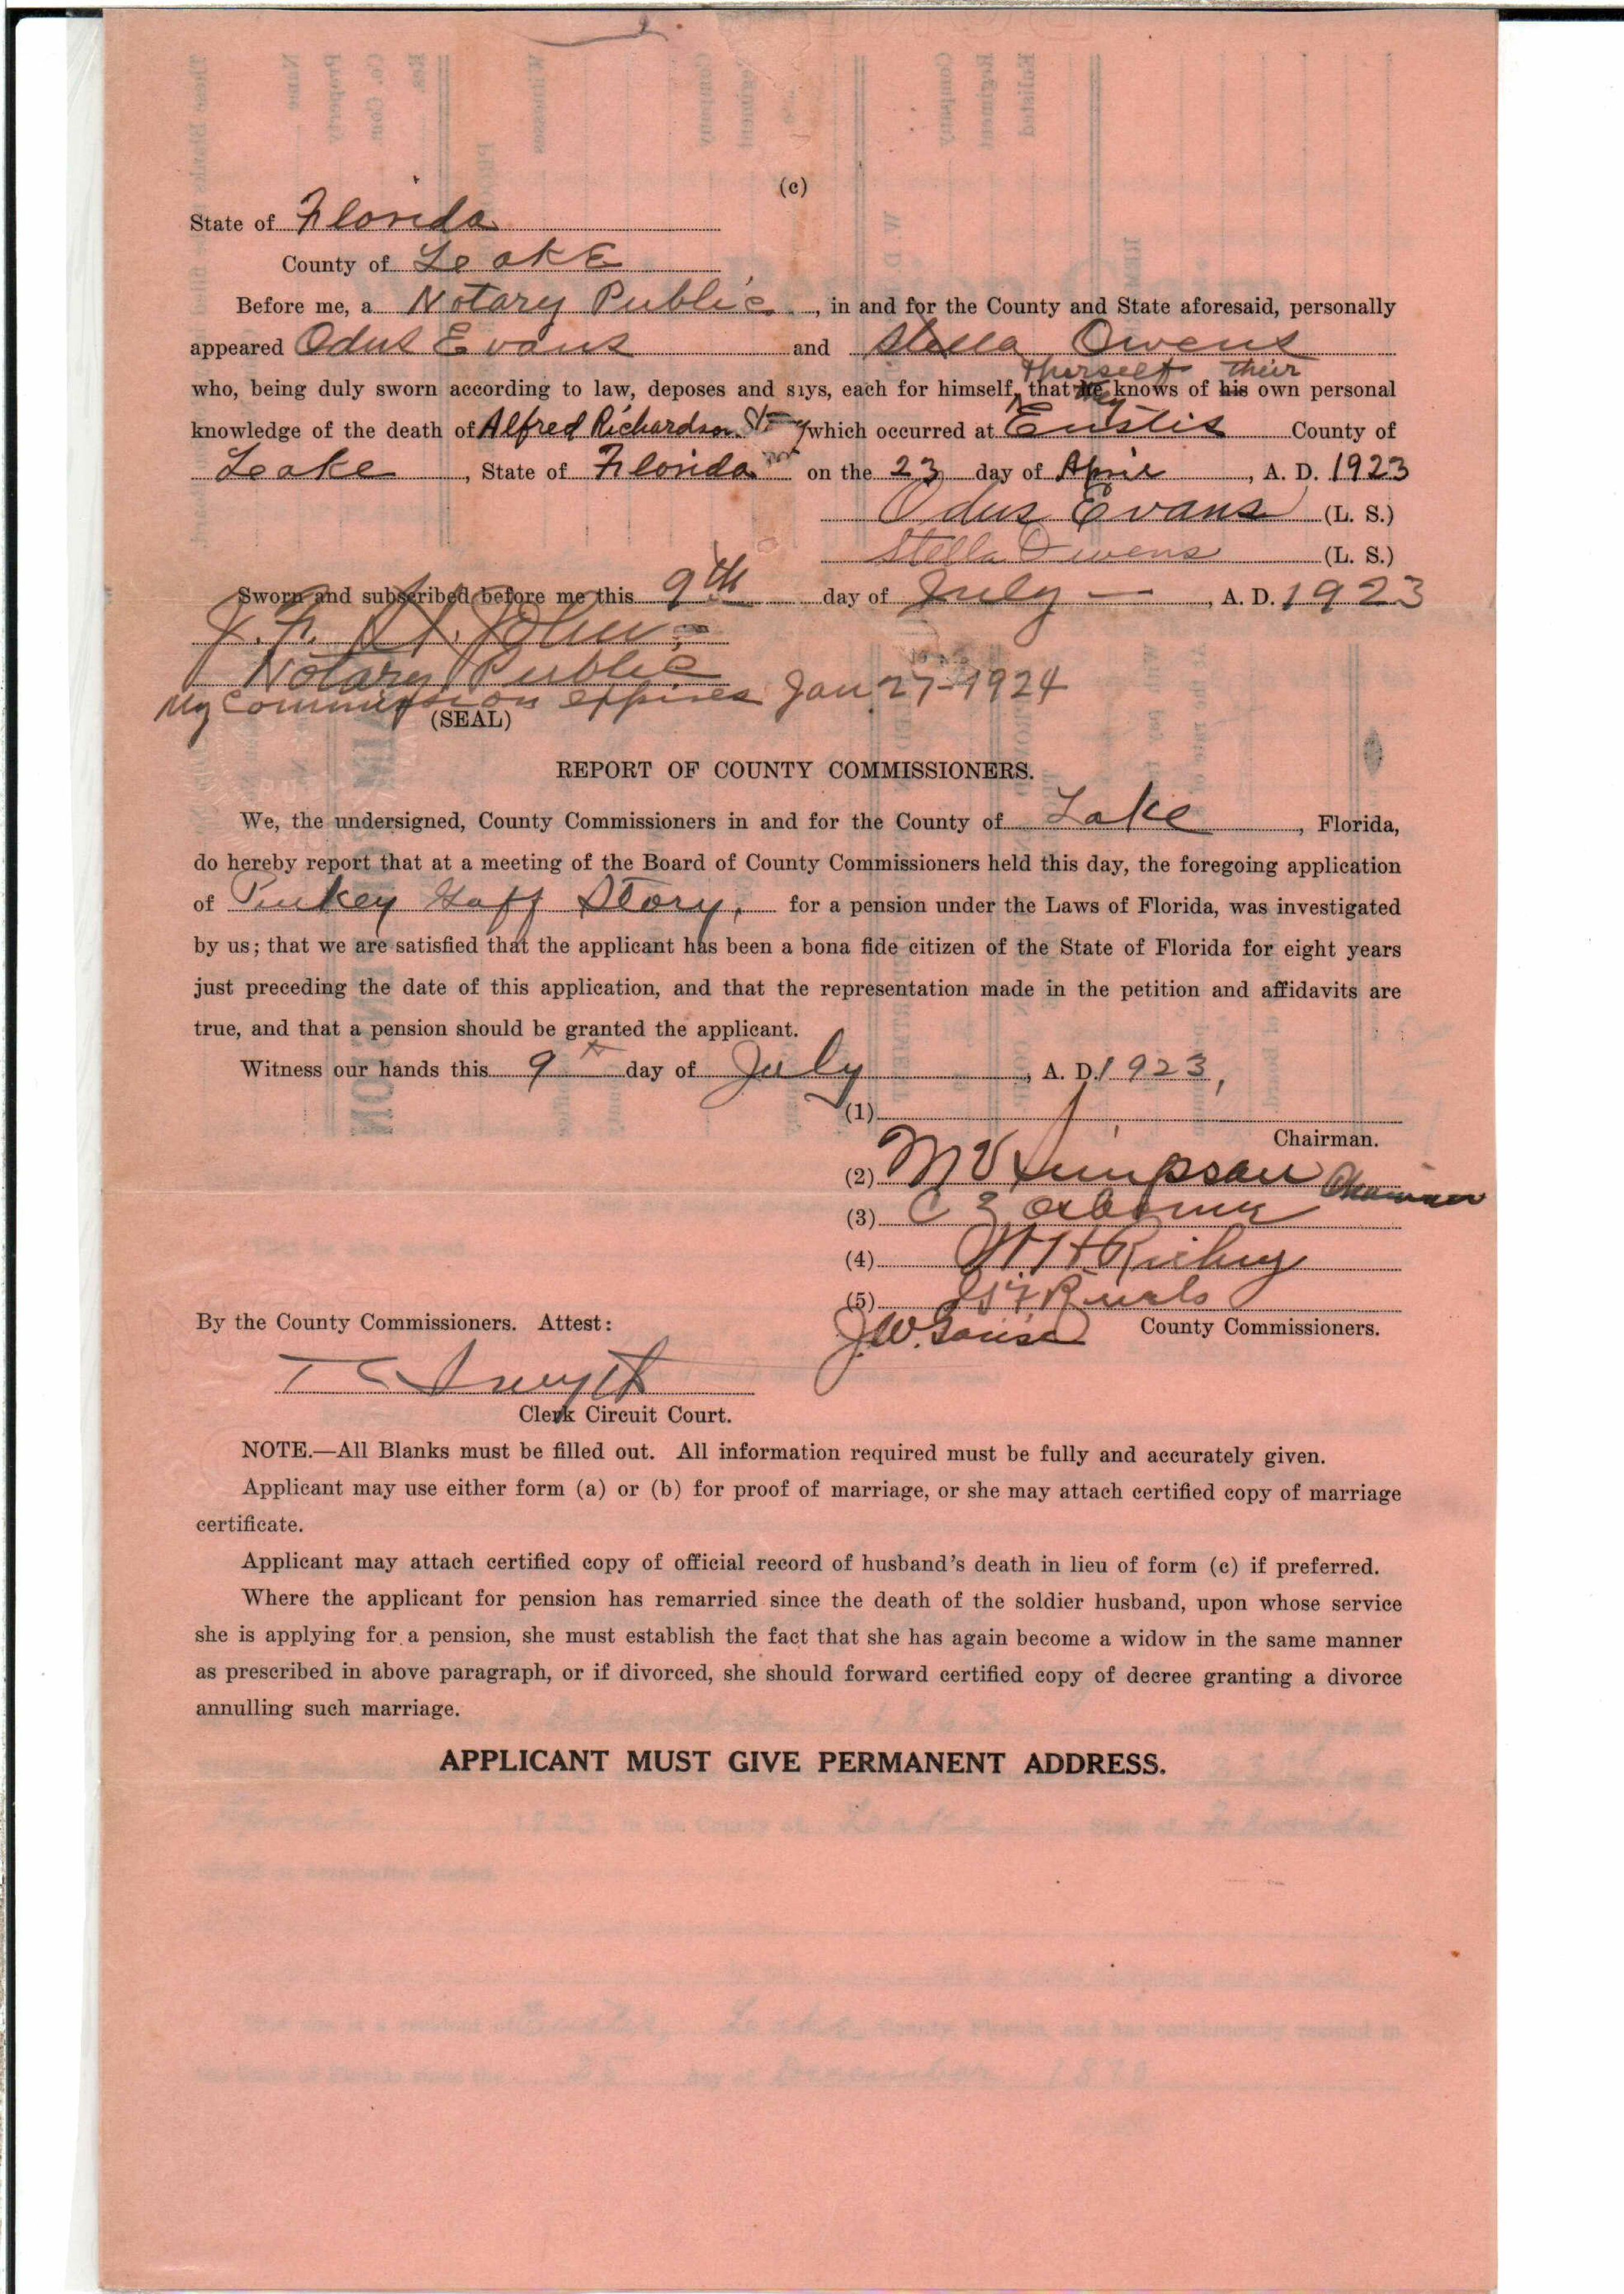 (c)
State of Florida
County of Lake
Before me, a Notary Public, in and for the County and State aforesaid, personally
appeared Odus Evans and Stella Owens
herself their
who, being duly sworn according to law, deposes and siys, each for himself, that he they knows of his own personal
knowledge of the death of Alfred Richardson Story which occurred at Eustis County of
Lake, State of Florida on the 23 day of April, A. D. 1923
Odus Evans (L. S.)
Stella Owens (L. S.)
Sworn and subscribed before me this 9th day of July, A. D. 1923
Notary Public
My Commission expires Jan 27-1924
(SEAL)
REPORT OF COUNTY COMMISSIONERS.
We, the undersigned, County Commissioners in and for the County of Lake, Florida,
do hereby report that at a meeting of the Board of County Commissioners held this day, the foregoing application
of Pinkey Goff Story, for a pension under the Laws of Florida, was investigated
by us; that we are satisfied that the applicant has been a bona fide citizen of the State of Florida for eight years
just preceding the date of this application, and that the representation made in the petition and affidavits are
true, and that a pension should be granted the applicant.
Witness our hands this 9th day of July, A. D. 1923,
(1)
Chairman.
(2) M V Simpson Chairman
(3) C
(4)
(5)
By the County Commissioners. Attest: J.W. County Commissioners.
T C Smyth
Clerk Circuit Court.
NOTE.—All Blanks must be filled out. All information required must be fully and accurately given.
Applicant may use either form (a) or (b) for proof of marriage, or she may attach certified copy of marriage
certificate.
Applicant may attach certified copy of official record of husband's death in lieu of form (c) if preferred.
Where the applicant for pension has remarried since the death of the soldier husband, upon whose service
she is applying for a pension, she must establish the fact that she has again become a widow in the same manner
as prescribed in above paragraph, or if divorced, she should forward certified copy of decree granting a divorce
annulling such marriage.
APPLICANT MUST GIVE PERMANENT ADDRESS.